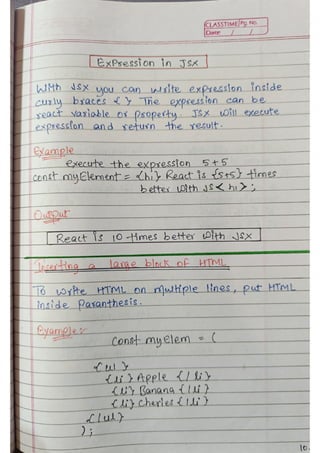 CLASSTIME Pg. No.
Date / /
Expression in JSX
With JSX you can write expression inside
curly braces { } The expression can be
react variable or property. JSX will execute
expression and return the result.
Example
execute the expression 5+5
const myElement = {hi} React is {5+5} times
better with JS < hi > ;
Output
React is 10 times better with JSX
Inserting a large block of HTML
To write HTML on multiple lines, put HTML
inside Paranthesis.
Example :-
const myElem = (
{ul}
{li} Apple {/li}
{li} Banana {/li}
{li} Cheries {/li}
{/ul}
);
10